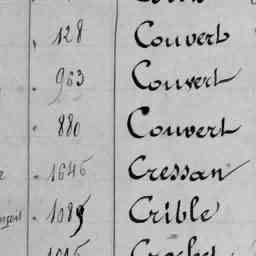 128 Couvert
963 Couvert
880 Couvert
1646 Cressan
1085 Crible